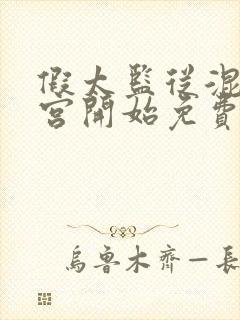 假太監從混
宮開始免費
烏魯木齊—長